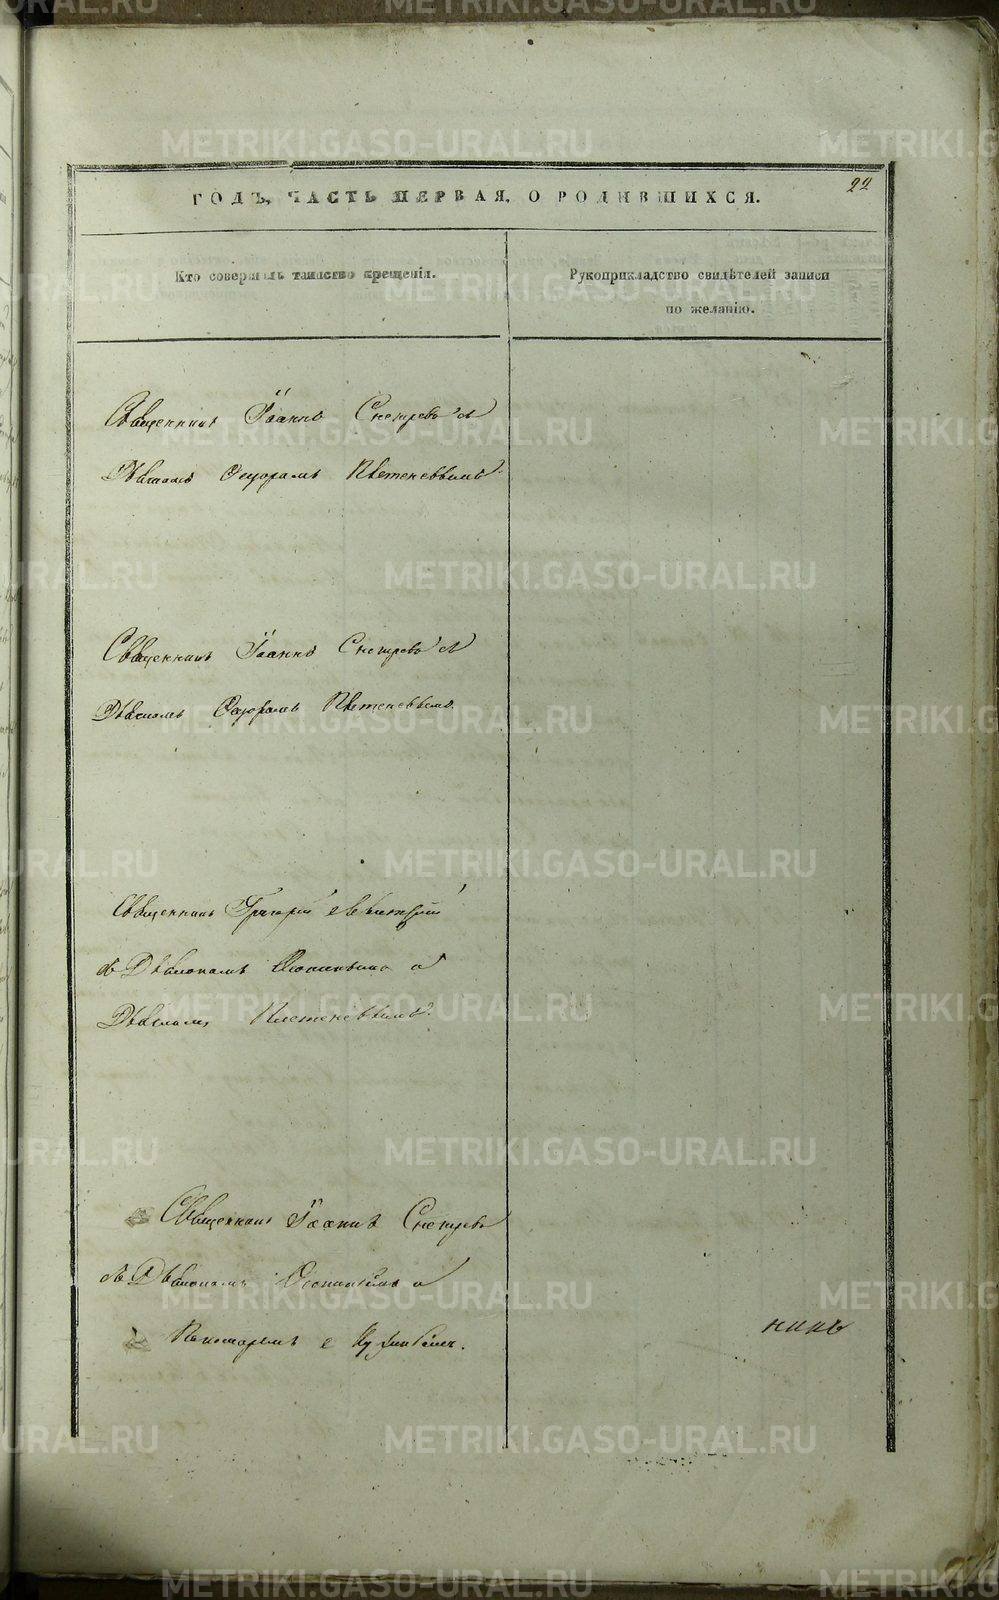 22
ГОДЪ, ЧАСТЬ ПЕРВАЯ, О РОДИВШИХСЯ.
Кто совершилъ таинство крещенія.
Рукоприкладство свидѣтелей записи
по желанію.
Священникъ Іоаннъ Снегиревъ съ
Дьячкомъ Ѳедоромъ Плетеневымъ
Священникъ Іоаннъ Снегиревъ съ
Дьячкомъ Ѳедоромъ Плетеневымъ
Священникъ Григорій
съ Діакономъ и
Дьячкомъ Плетеневымъ
Священникъ Іоаннъ Снегиревъ
съ Діакономъ и
Пономаремъ
никъ
METRIKI.GASO-URAL.RU